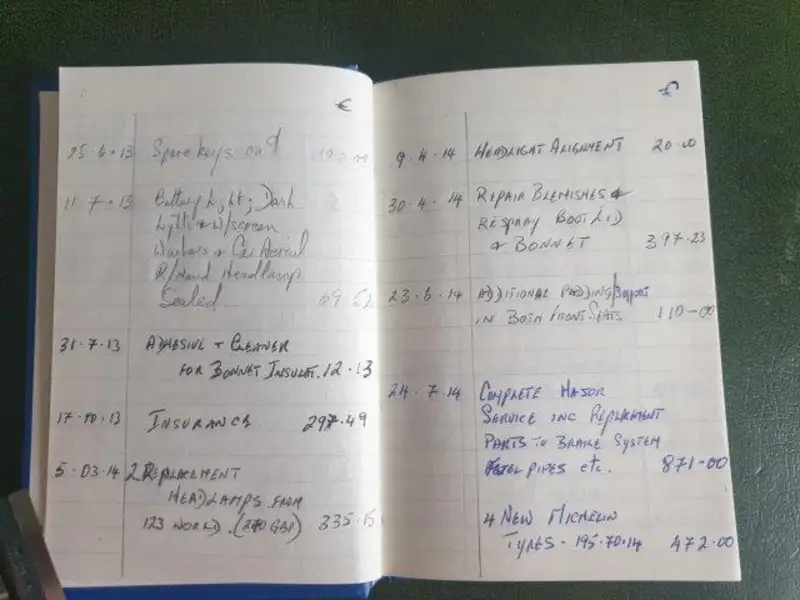 €
25.6.13 Spare keys
11.7.13 Battery Light; Dash
Lights + W/screen
Washers + Car Aerial
R/Hand Headlamp
Sealed 69.52
31.7.13 ADHESIVE + CLEANER
FOR BONNET INSULAT. 12.13
17.10.13 INSURANCE 297.49
5.03.14 2 REPLACEMENT
HEADLAMPS FROM
123 WORLD. (270 GBP) 335.15
€
9.4.14 HEADLIGHT ALIGNMENT 20.00
30.4.14 REPAIR BLEMISHES +
RESPRAY BOOT LID
+ BONNET 397.23
23.6.14 ADDITIONAL PADDING/Support
IN BOTH FRONT SEATS 110-00
24.7.14 COMPLETE MAJOR
SERVICE INC REPLACMENT
PARTS TO BRAKE SYSTEM
PIPES etc. 871-00
4 NEW MICHELIN
TYRES - 195.70.14 472.00